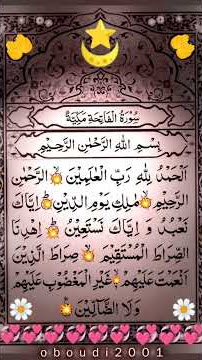 سُورَةُ الْفَاتِحَةِ مَكِّيَّةٌ
بِسْمِ اللهِ الرَّحْمٰنِ الرَّحِيْمِ
اَلْحَمْدُ لِلّٰهِ رَبِّ الْعٰلَمِيْنَ الرَّحْمٰنِ
الرَّحِيْمِ مٰلِكِ يَوْمِ الدِّيْنِ اِيَّاكَ
نَعْبُدُ وَ اِيَّاكَ نَسْتَعِيْنُ اِهْدِنَا
الصِّرَاطَ الْمُسْتَقِيْمَ صِرَاطَ الَّذِيْنَ
اَنْعَمْتَ عَلَيْهِمْ غَيْرِ الْمَغْضُوْبِ عَلَيْهِمْ
وَلَا الضَّآلِّيْنَ
oboudi2001